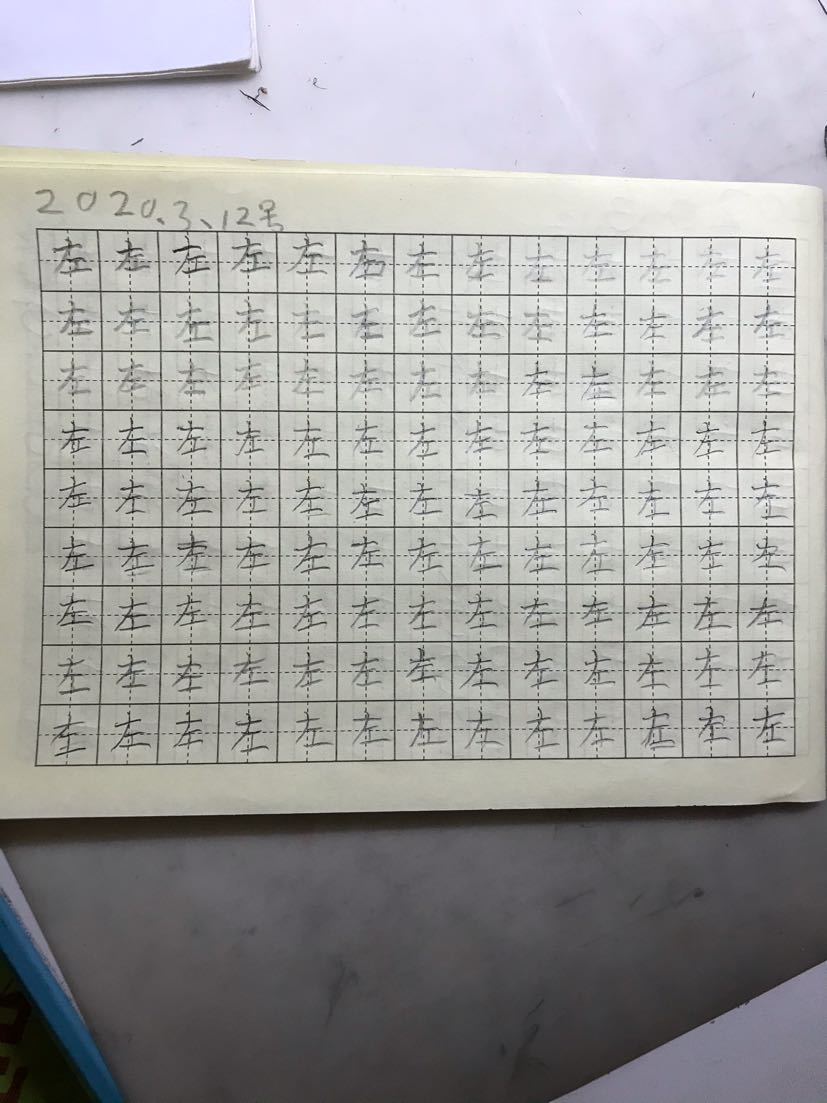 2020.3、12号
左左左左左左左左左左左左左
左左左左左左左左左左左左左
左左左左左左左左左左左左左
左左左左左左左左左左左左左
左左左左左左左左左左左左左
左左左左左左左左左左左左左
左左左左左左左左左左左左左
左左左左左左左左左左左左左
左左左左左左左左左左左左左